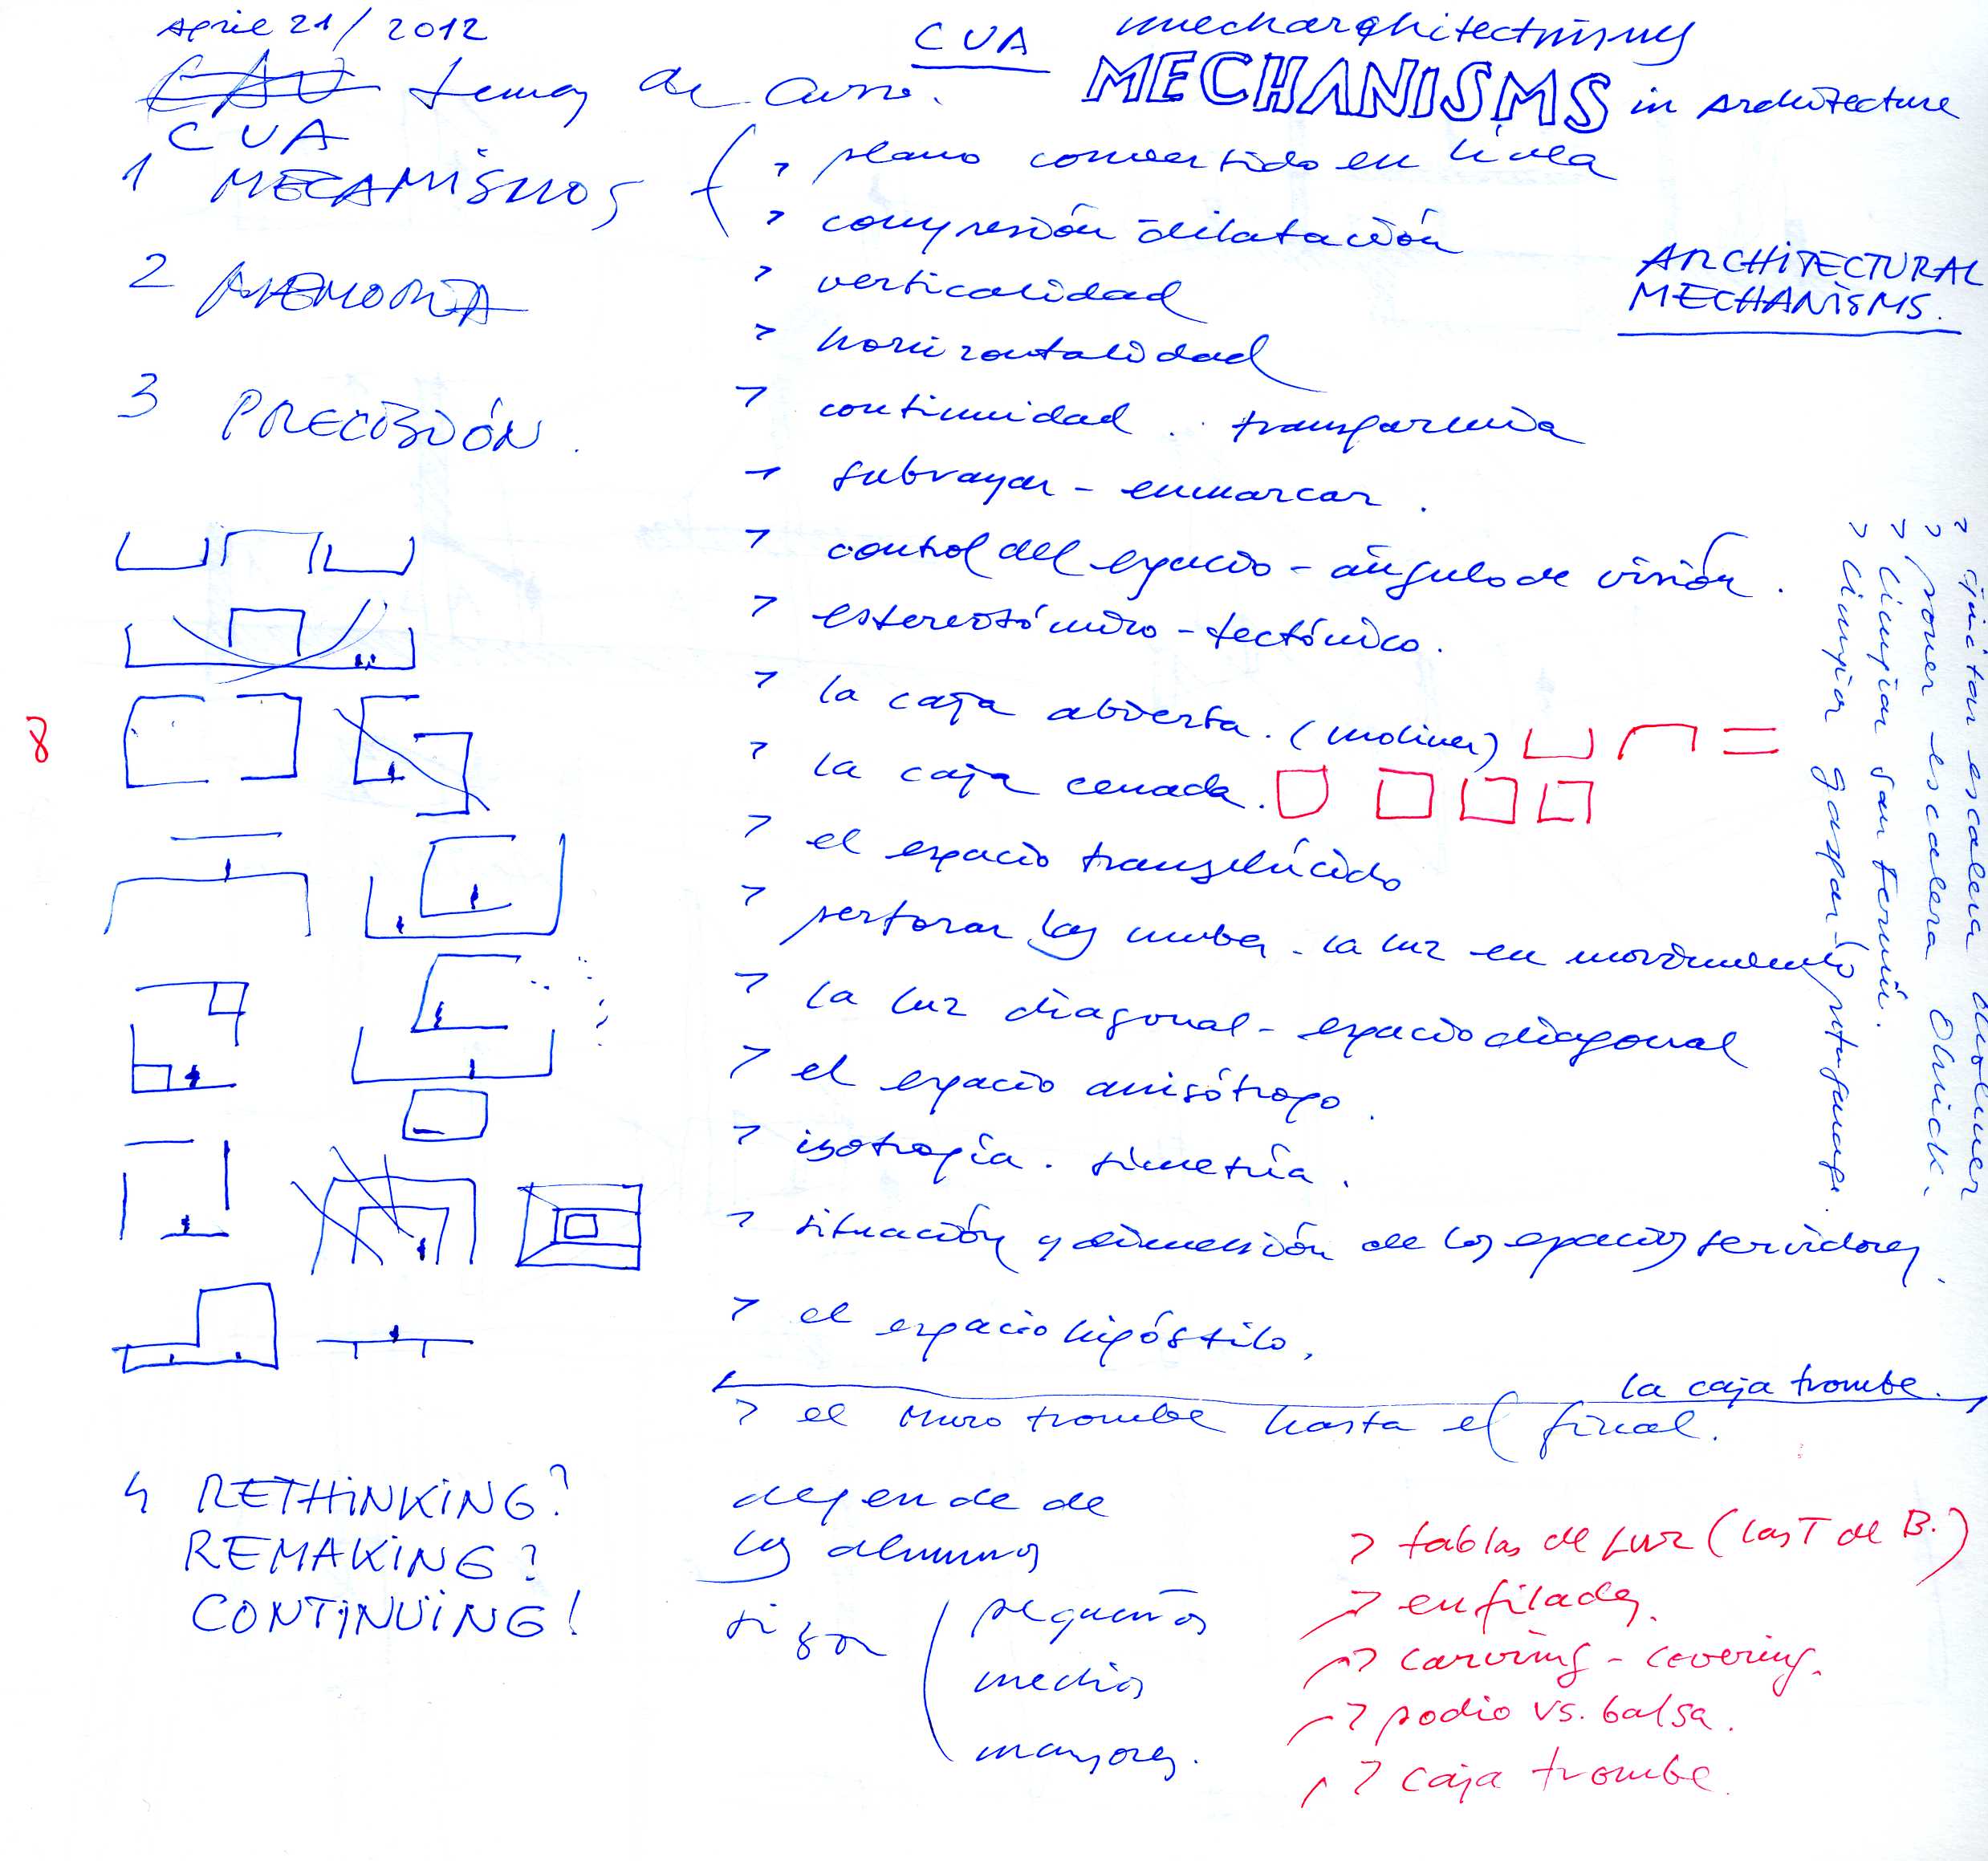 April 21 / 2012
CUA
mecharchitectnisms
MECHANISMS in Architecture
CAU temas de curso.
CUA
1 MECANISMOS
> plano convertido en línea
> compresión dilatación
ARCHITECTURAL
MECHANISMS.
2 MEMORIA
> verticalidad
> horizontalidad
3 PRECISIÓN.
> continuidad . transparencia
> subrayar - enmarcar.
> control del espacio - ángulo de visión.
> estereotómico - tectónico.
> la caja abierta. (moliner)
8
> la caja cerrada.
> el espacio translúcido
> perforar las nubes - la luz en movimiento
> la luz diagonal - espacio diagonal
> el espacio anisótropo.
> isotropía. simetría.
> situación y dimensión de los espacios servidores.
> el espacio hipóstilo.
la caja trombe.
> el muro trombe hasta el final.
> quitar escalera moliner
> poner escalera Olnick.
> limpiar san fermín.
> limpiar gaspar
4 RETHINKING?
REMAKING?
CONTINUING!
depende de
los alumnos
si son
pequeños
medios
mayores.
> tablas de luz (las T de B.)
> enfilades.
> carving - covering.
> podio vs. balsa.
> caja trombe.